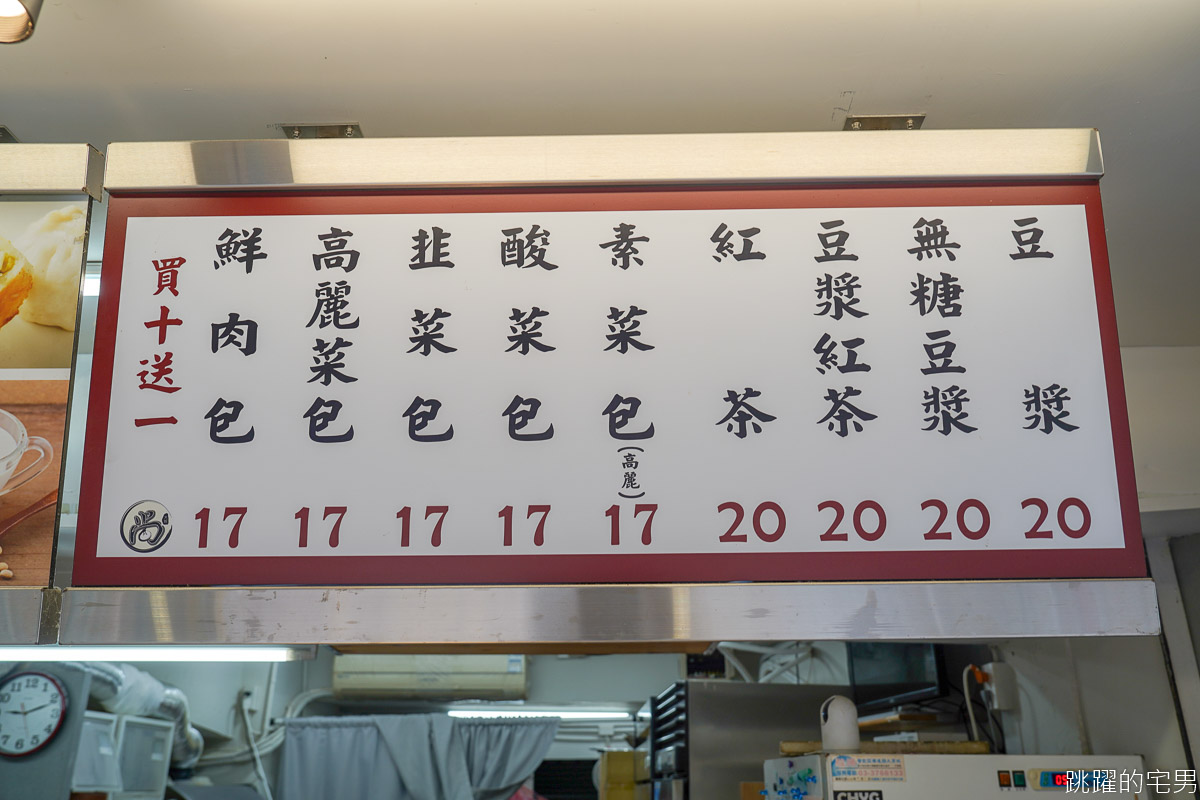 買十送一
鮮肉包 17
高麗菜包 17
韭菜包 17
酸菜包 17
素菜包(高麗) 17
紅茶 20
豆漿紅茶 20
無糖豆漿 20
豆漿 20
尚
CHYG
跳躍的宅男